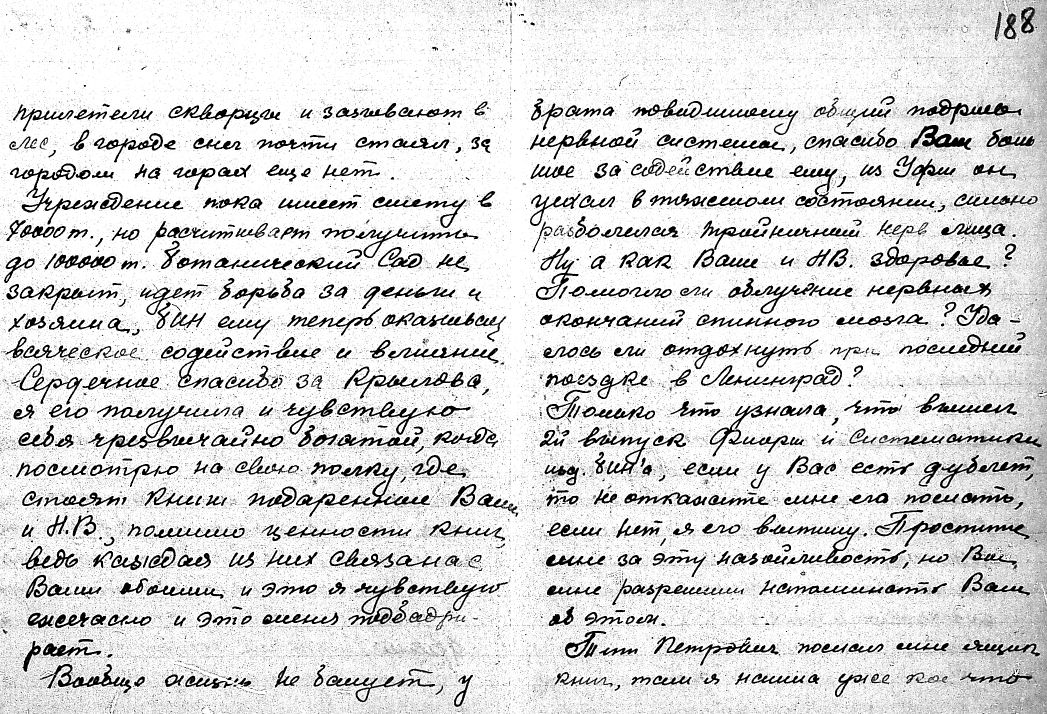 188
прилетели скворцы и зазывают в
лес, в городе снег почти стаял, за
городом на горах еще нет.
Учреждение пока имеет смету в
70000 т., но расчитывает получить
до 100000 т. Ботанический Сад не
закрыт, идет борьба за деньги и
хозяина, БИН ему теперь оказывает
всяческое содействие и влияние.
Сердечное спасибо за Крылова,
я его получила и чувствую
себя чрезвычайно богатой, когда
посмотрю на свою полку, где
стоят книги подаренные Вами
и Н.В., помимо ценности книг,
ведь каждая из них связана с
Вами обоими и это я чувствую
ежечасно и это меня подбадри-
вает.
Вообще жизнь не балует, у
брата повидимому общий подрыв
нервной системы, спасибо Вам боль
шое за содействие ему, из Уфы он
уехал в тяжелом состоянии, сильно
разболелся тройничный нерв лица.
Ну а как Ваше и Н.В. здоровье?
Помогло ли облучение нервных
окончаний спинного мозга? Уда-
лось ли отдохнуть при последней
поездке в Ленинград?
Только что узнала, что вышел
2й выпуск Флоры и Систематики
изд. БИН'а, если у Вас есть дублет,
то не откажите мне его послать,
если нет, я его выпишу. Простите
мне за эту назойливость, но Вы
мне разрешили напоминать Вам
об этом.
Петрович послал мне ящик
книг, там я нашла уже кое что